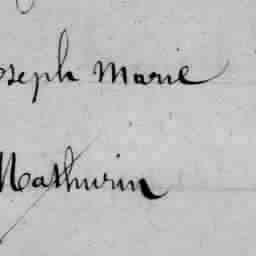 oseph Marie
Mathurin